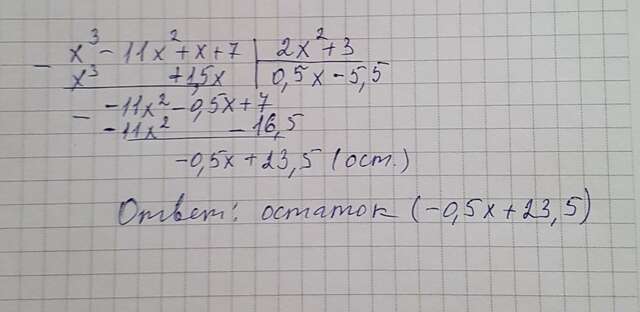 x³ - 11x² + x + 7 | 2x² + 3
x³ + 1,5x | 0,5x - 5,5
- -11x² - 0,5x + 7
-11x² - 16,5
-0,5x + 23,5 (ост.)
Ответ: остаток (-0,5x + 23,5)